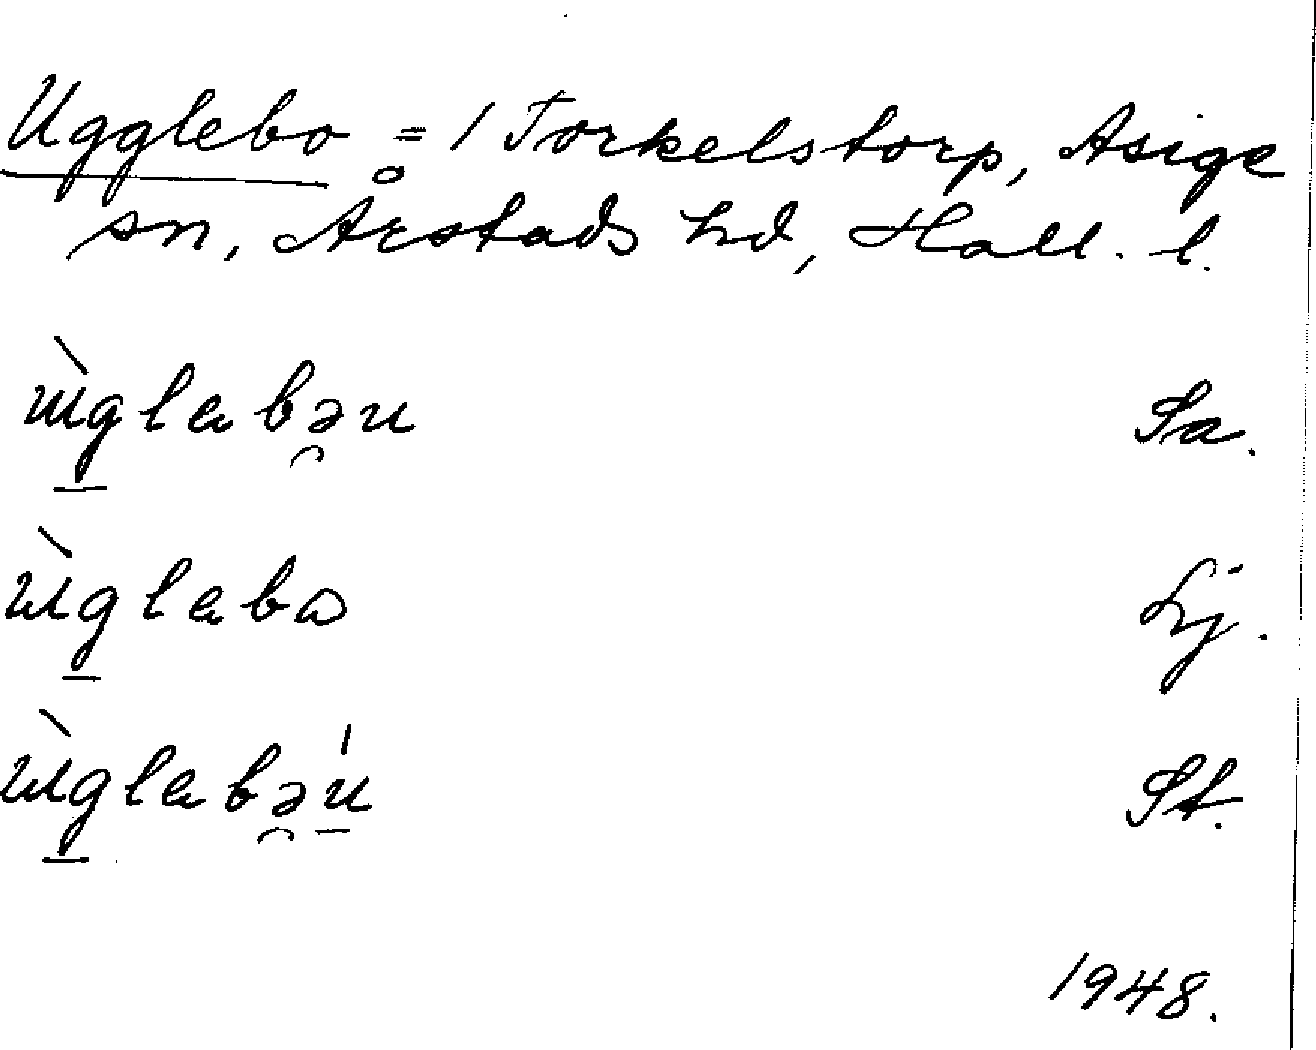 Ugglebo = 1 Torkelstorp, Asige
sn, Årstads hd, Hall. l.
ɯ̀glabəu Sa.
ɯ̀glabɷ Lj.
ɯ̀glabəú St.
1948.